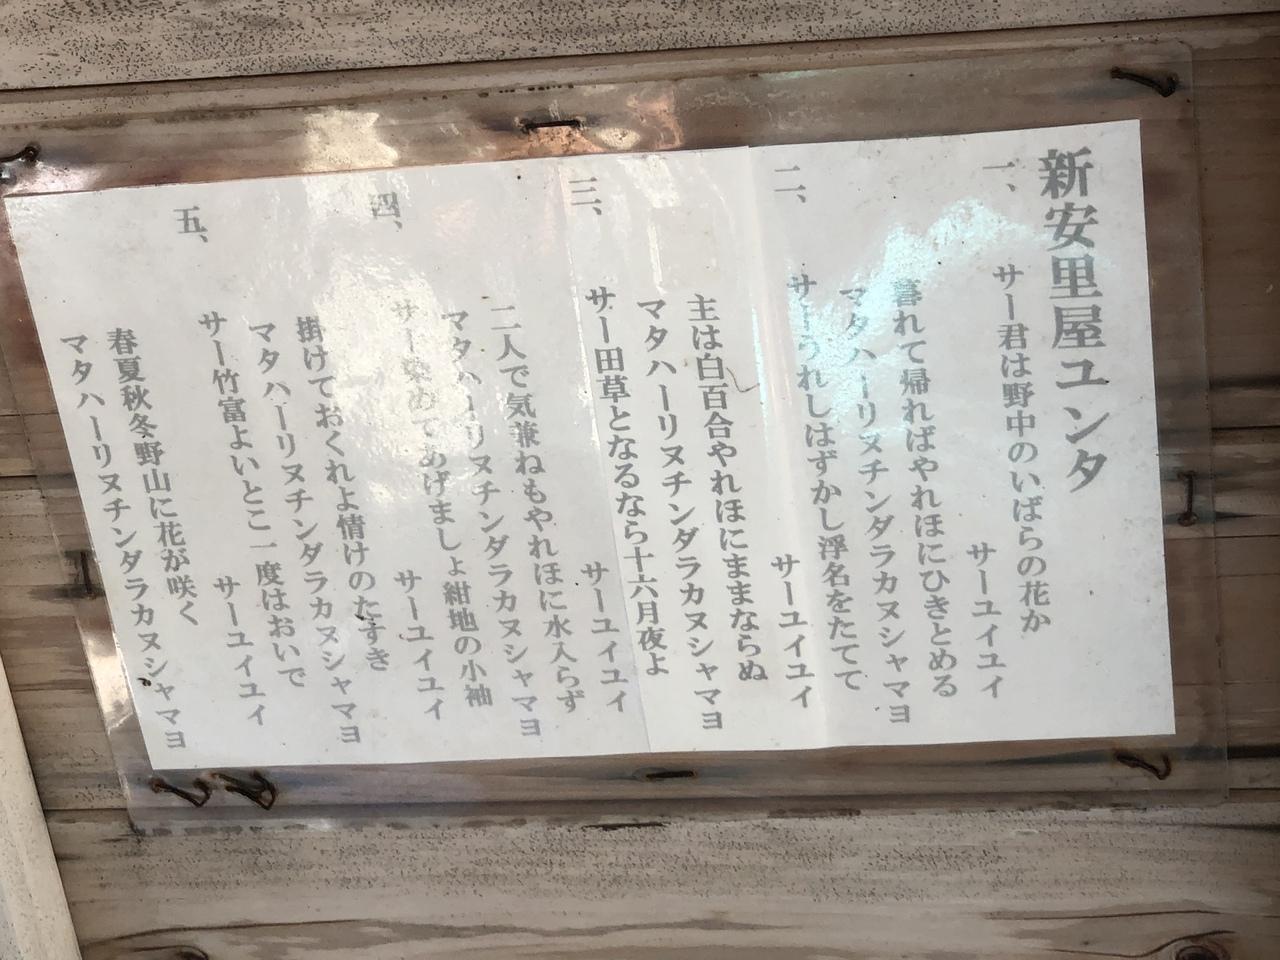 新安里屋ユンタ
一、
サー君は野中のいばらの花か
サーユイユイ
暮れて帰ればやれほにひきとめる
マタハーリヌチンダラカヌシャマヨ
二、
サーうれしはずかし浮名をたてて
サーユイユイ
主は白百合やれほにままならぬ
マタハーリヌチンダラカヌシャマヨ
三、
サー田草となるなら十六月夜よ
サーユイユイ
二人で気兼ねもやれほに水入らず
マタハーリヌチンダラカヌシャマヨ
四、
サー染めてあげましょ紺地の小袖
サーユイユイ
掛けておくれよ情けのたすき
マタハーリヌチンダラカヌシャマヨ
五、
サー竹富よいとこ一度はおいで
サーユイユイ
春夏秋冬野山に花が咲く
マタハーリヌチンダラカヌシャマヨ